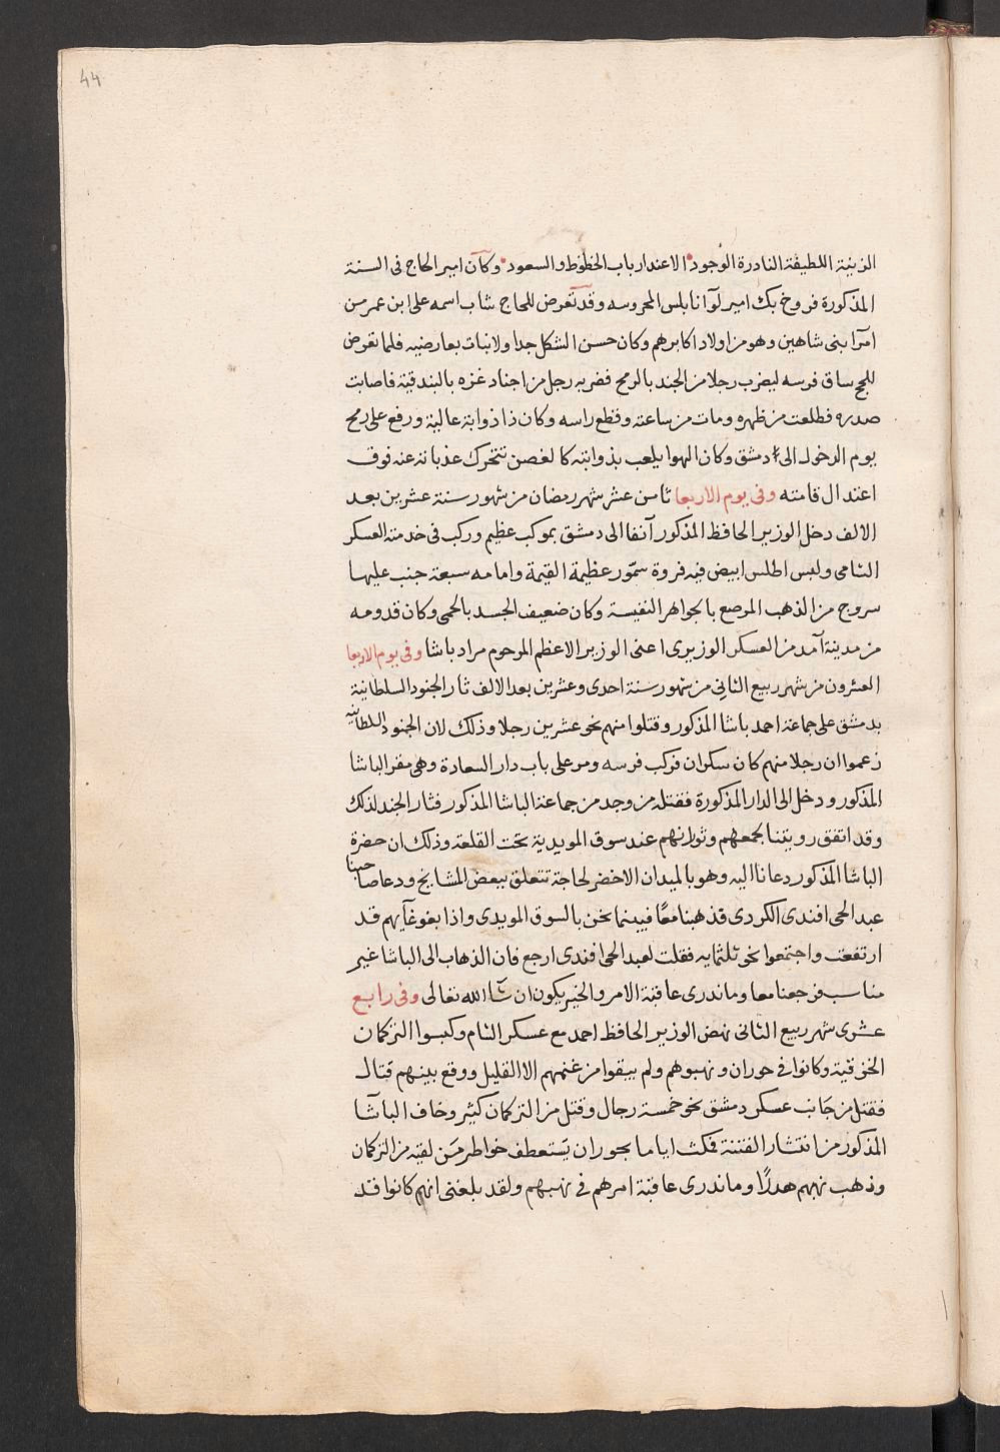 44
الزينة اللطيفة النادرة الوجود الا عند ارباب الحظوظ والسعود وكان امير الحاج فى السنة
المذكورة فروخ بك امير لوآ نابلس المحروسه وقد تعرض للحاج شاب اسمه على ابن عمر من
امرآ بنى شاهين وهو من اولاد اكابرهم وكان حسن الشكل جدا ولا نبات بعارضيه فلما تعرض
للحج ساق فرسه ليضرب رجلا من الجند بالرمح فضربه رجل من اجناد غزه بالبندقية فاصابت
صدره فطلعت من ظهره ومات من ساعته وقطع راسه وكان ذا ذوابة عالية ورفع على رمح
يوم الدخول الى دمشق وكان الهوا يلعب بذوابته كالغصن تتحرك عذباته عنه فوق
اعتدال قامته وفى يوم الاربعا ثامن عشر شهر رمضان من شهور سنة عشرين بعد
الالف دخل الوزير الحافظ المذكور آنفا الى دمشق بموكب عظيم وركب فى خدمته العسكر
الشامى ولبس اطلس ابيض فيه فروة سمّور عظيمة القيمة وامامه سبعة جنب عليها
سروج من الذهب المرصع بالجواهر النفيسة وكان ضعيف الجسد بالحمى وكان قدومه
من مدينة آمد من العسكر الوزيرى اعنى الوزير الاعظم المرحوم مراد باشا وفى يوم الاربعا
العشرون من شهر ربيع الثانى من شهور سنة احدى وعشرين بعد الالف ثار الجنود السلطانية
بدمشق على جماعة احمد باشا المذكور وقتلوا منهم نحو عشرين رجلا وذلك لان الجنود السلطانيه
زعموا ان رجلا منهم كان سكران فركب فرسه ومر على باب دار السعادة وهى مقر الباشا
المذكور ودخل الى الدار المذكورة فقتله من وجد من جماعة الباشا المذكور فثار الجند لذلك
وقد اتفق رويتنا تجمعهم وثورانهم عند سوق المويدية تحت القلعة وذلك ان حضرة
الباشا المذكور دعانا اليه وهو بالميدان الاخضر لحاجة تتعلق ببعض المشايخ ودعا صاحبنا
عبد الحى افندى الكردى فذهبنا معًا فبينما نحن بالسوق المويدى واذا بغوغآيهم قد
ارتفعت واجتمعوا نحو ثلثمايه فقلت لعبد الحى افندى ارجع فان الذهاب الى الباشا غير
مناسب فرجعنا معا وما ندرى عاقبة الامر والخير يكون ان شآ الله تعالى وفى رابع
عشرى شهر ربيع الثانى نهض الوزير الحافظ احمد مع عسكر الشام وكبسوا التركمان
وكانوا فى حوران ونهبوهم ولم يبقوا من غنمهم الا القليل ووقع بينهم قتال
فقتل من جانب عسكر دمشق نحو خمسة رجال وقتل من التركمان كثير وخاف الباشا
المذكور من انتشار الفتنة فمكث اياما بحوران يستعطف خواطر من لقيه من التركمان
وذهب نهبهم هدرًا وما ندرى عاقبة امرهم فى نهبهم ولقد بلغنى انهم كانوا قد